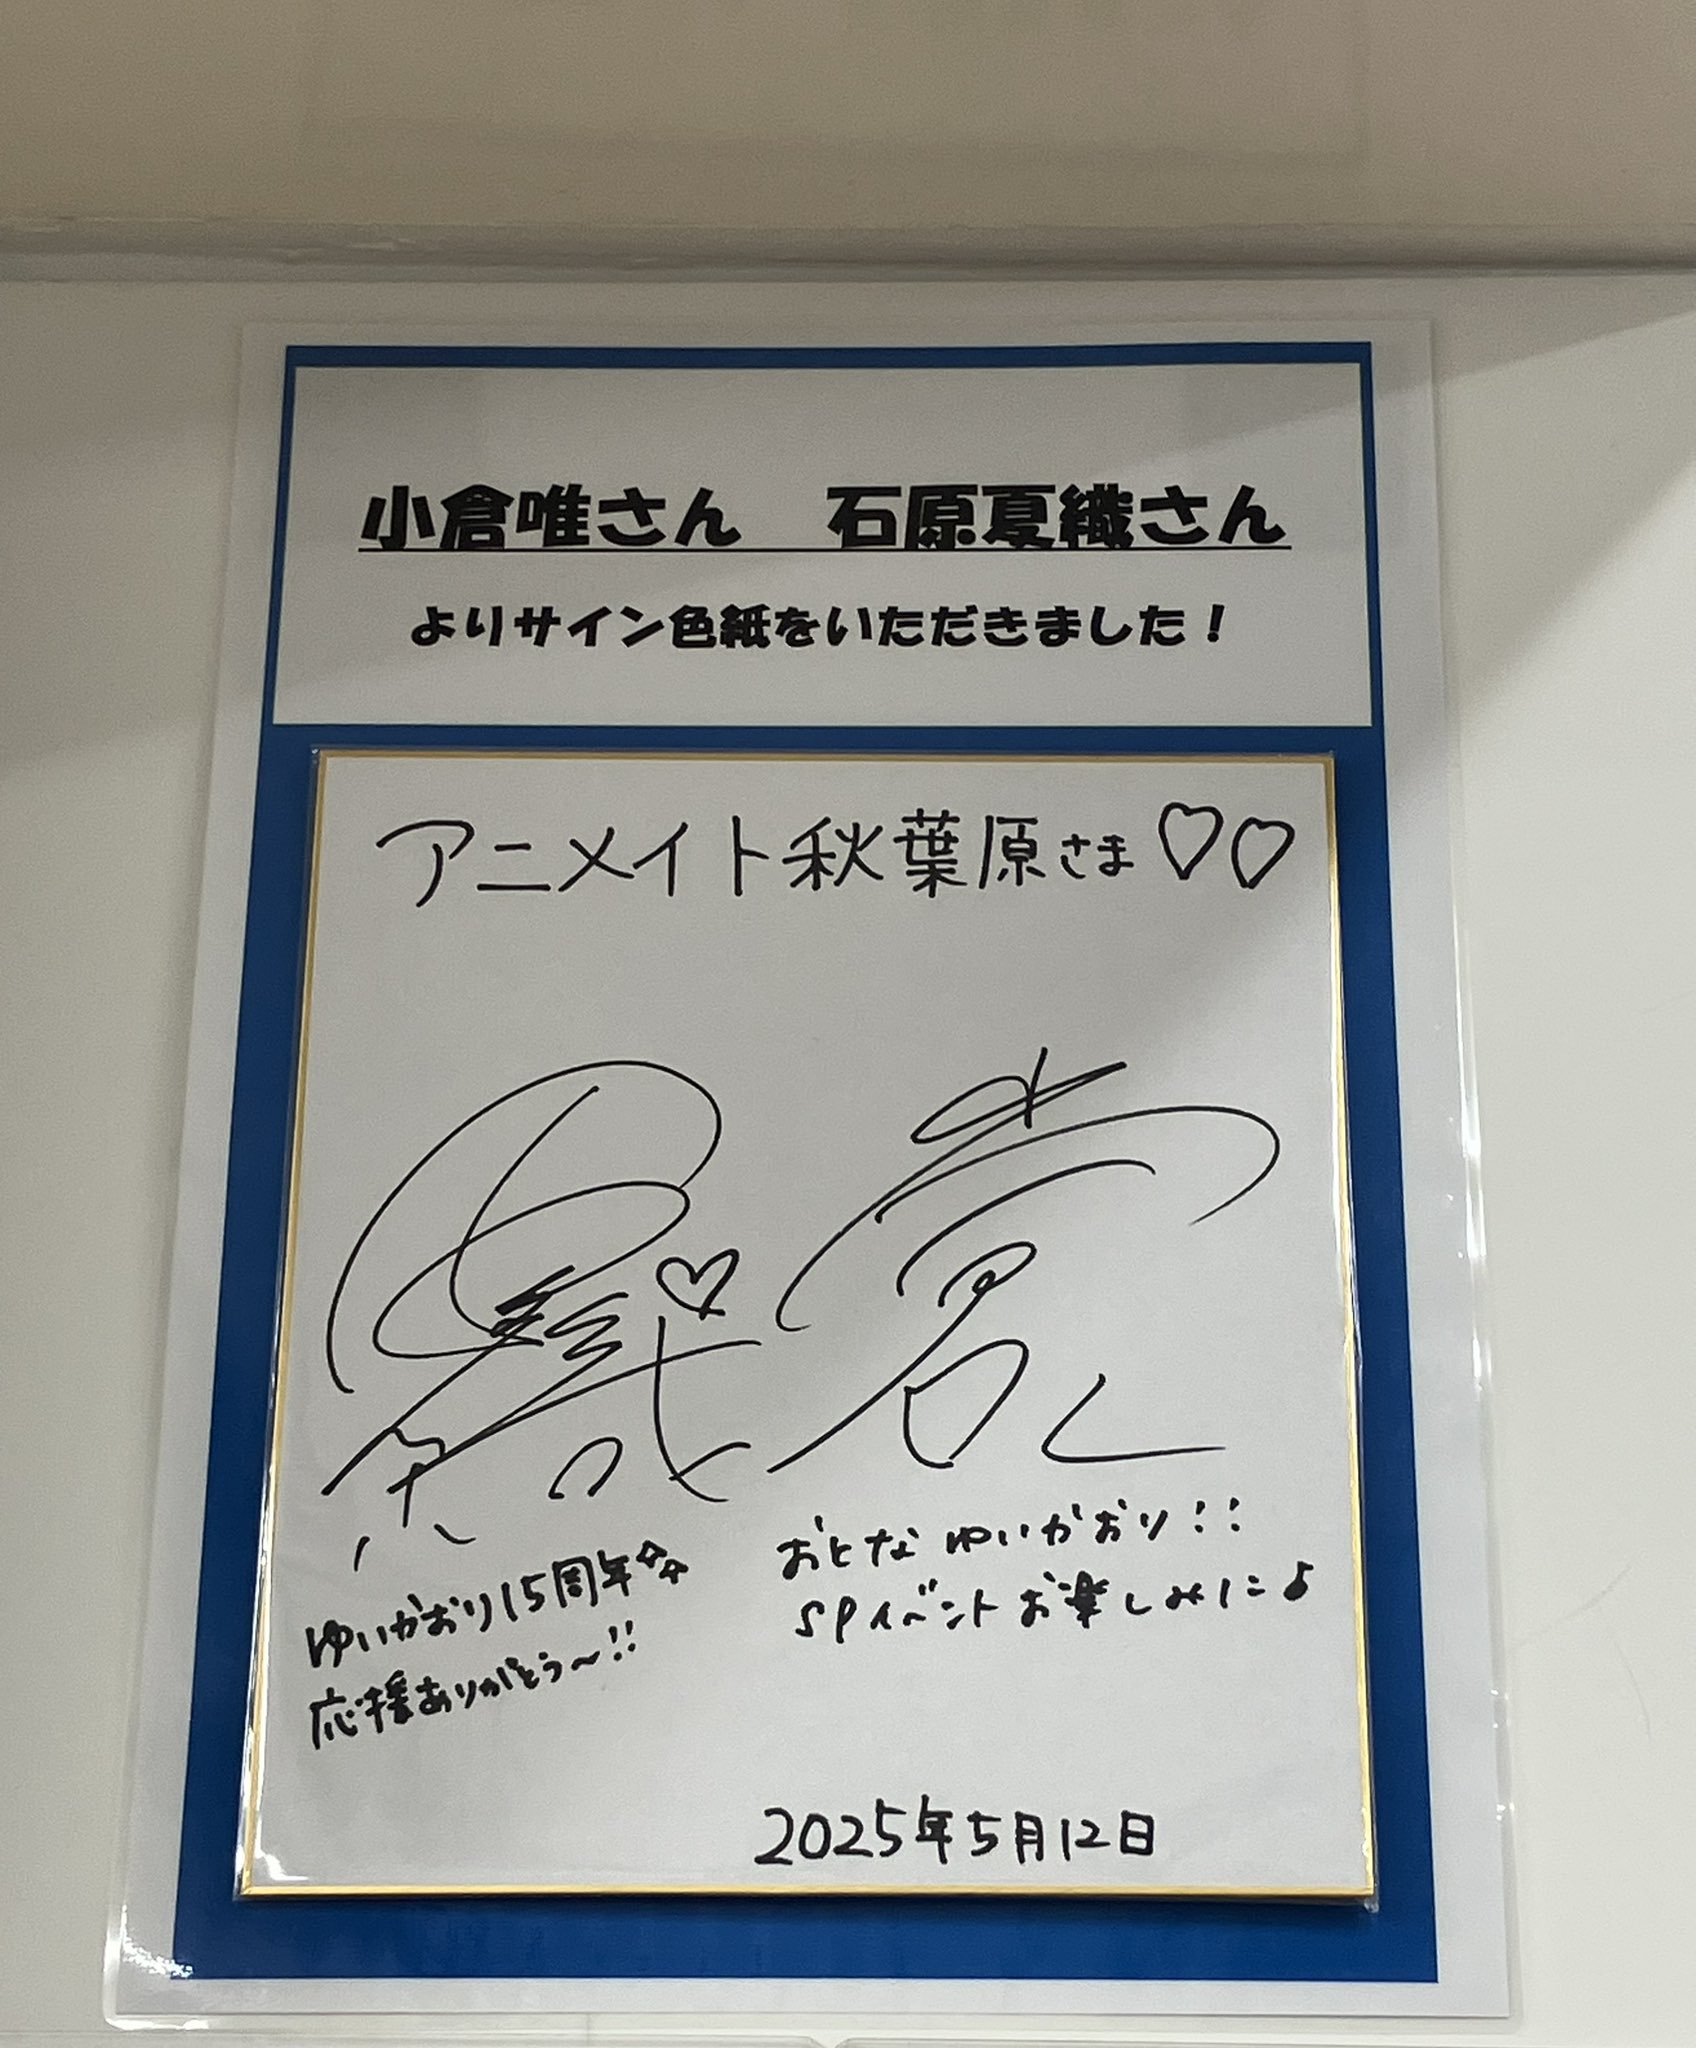 小倉唯さん　石原夏織さん
よりサイン色紙をいただきました！
アニメイト秋葉原さま♡♡
ゆいかおり15周年☆☆
応援ありがとう〜!!
おとなゆいかおり!!
SPイベントお楽しみに♪
2025年5月12日